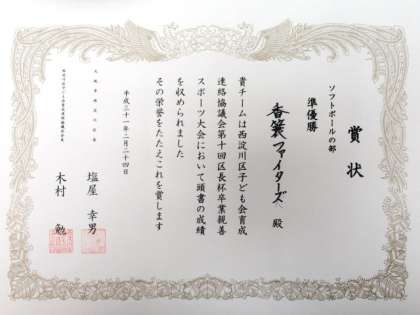 賞状
ソフトボールの部
準優勝
香簑ファイターズ 殿
貴チームは西淀川区子ども会育成
連絡協議会第十四区長杯卒業親善
スポーツ大会において頭書の成績
を収められました
その栄誉をたたえこれを賞します
平成三十一年二月二十四日
大阪市西淀川区長
塩屋 幸男
木村 勉